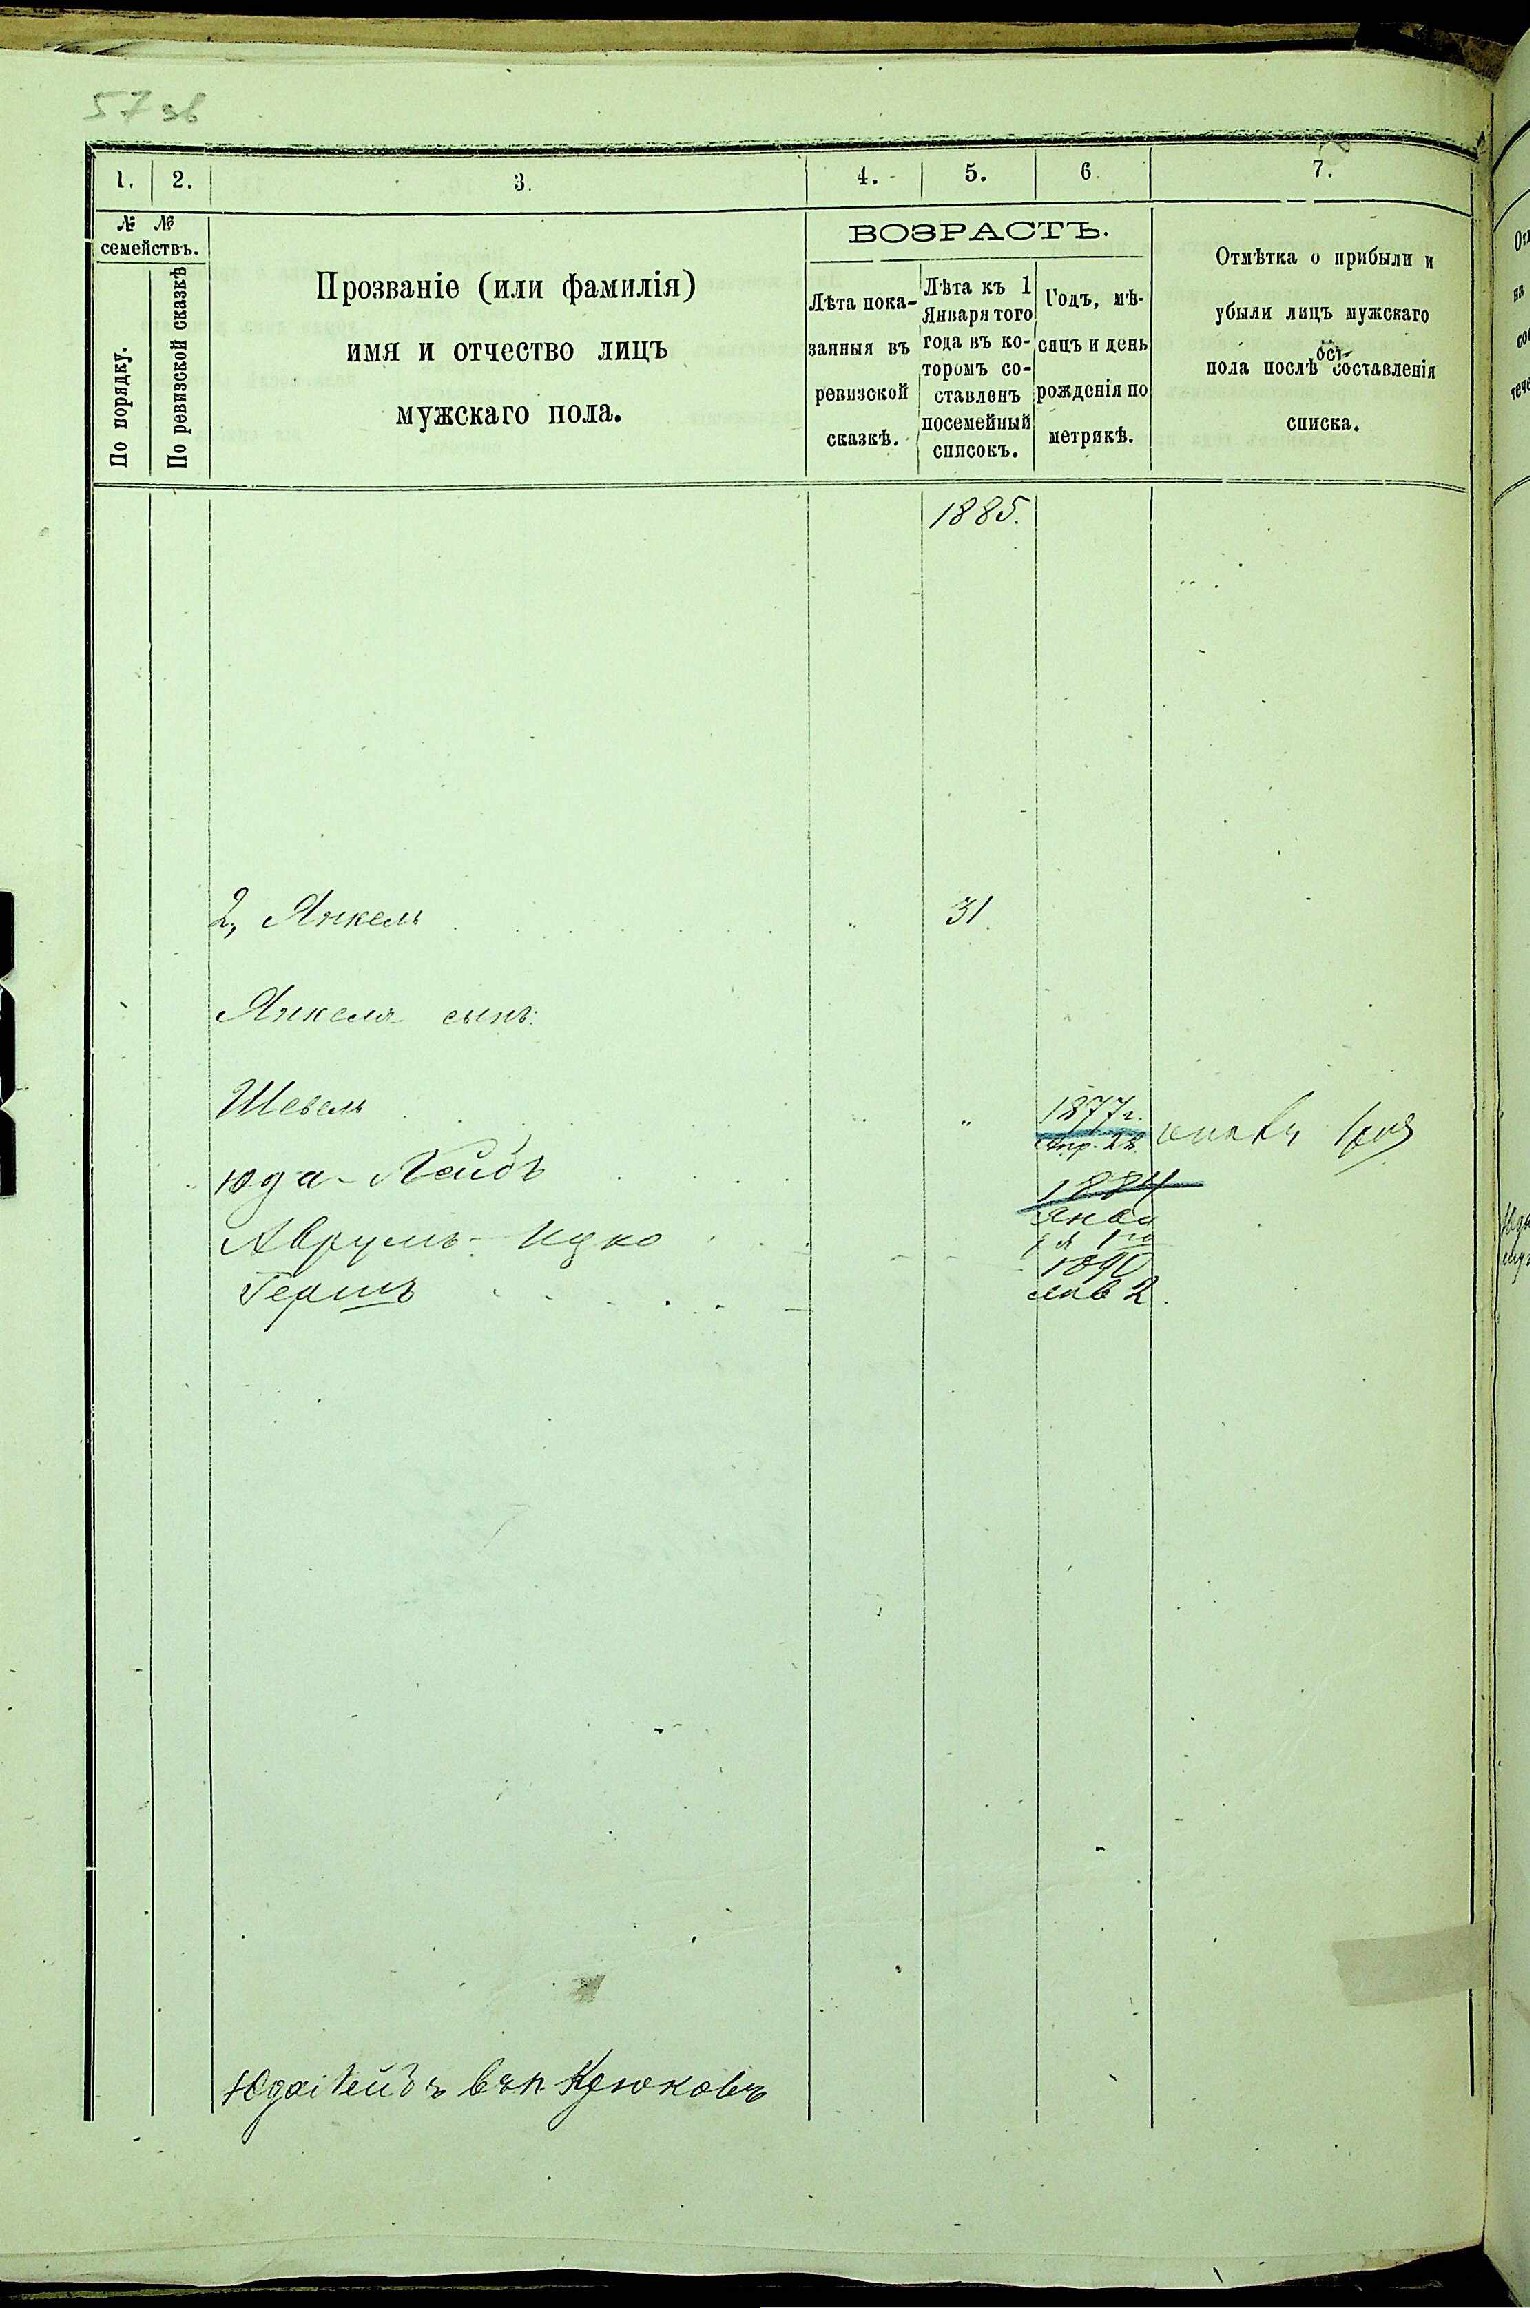 57 зв
1. 2. 3. 4. 5. 6. 7.
№ № семействъ.
По порядку.
По ревизской сказкѣ
Прозваніе (или фамилія)
имя и отчество лицъ
мужскаго пола.
ВОЗРАСТЪ.
Лѣта пока-
занныя въ
ревизской
сказкѣ.
Лѣта къ 1
Января того
года въ ко-
торомъ со-
ставленъ
посемейный
списокъ.
Годъ, мѣ-
сяцъ и день
рожденія по
метрикѣ.
Отмѣтка о прибыли и
убыли лицъ мужскаго
пола послѣ составленія
списка.
1885.
2, Янкель 31
Янкеля сынъ:
Шевель 1877 г.
Апр. 22.
Юда-Лейбъ 1884
Аврумъ-Ицко
Гершъ 1890
Юда Лейбъ въ п Крюковъ